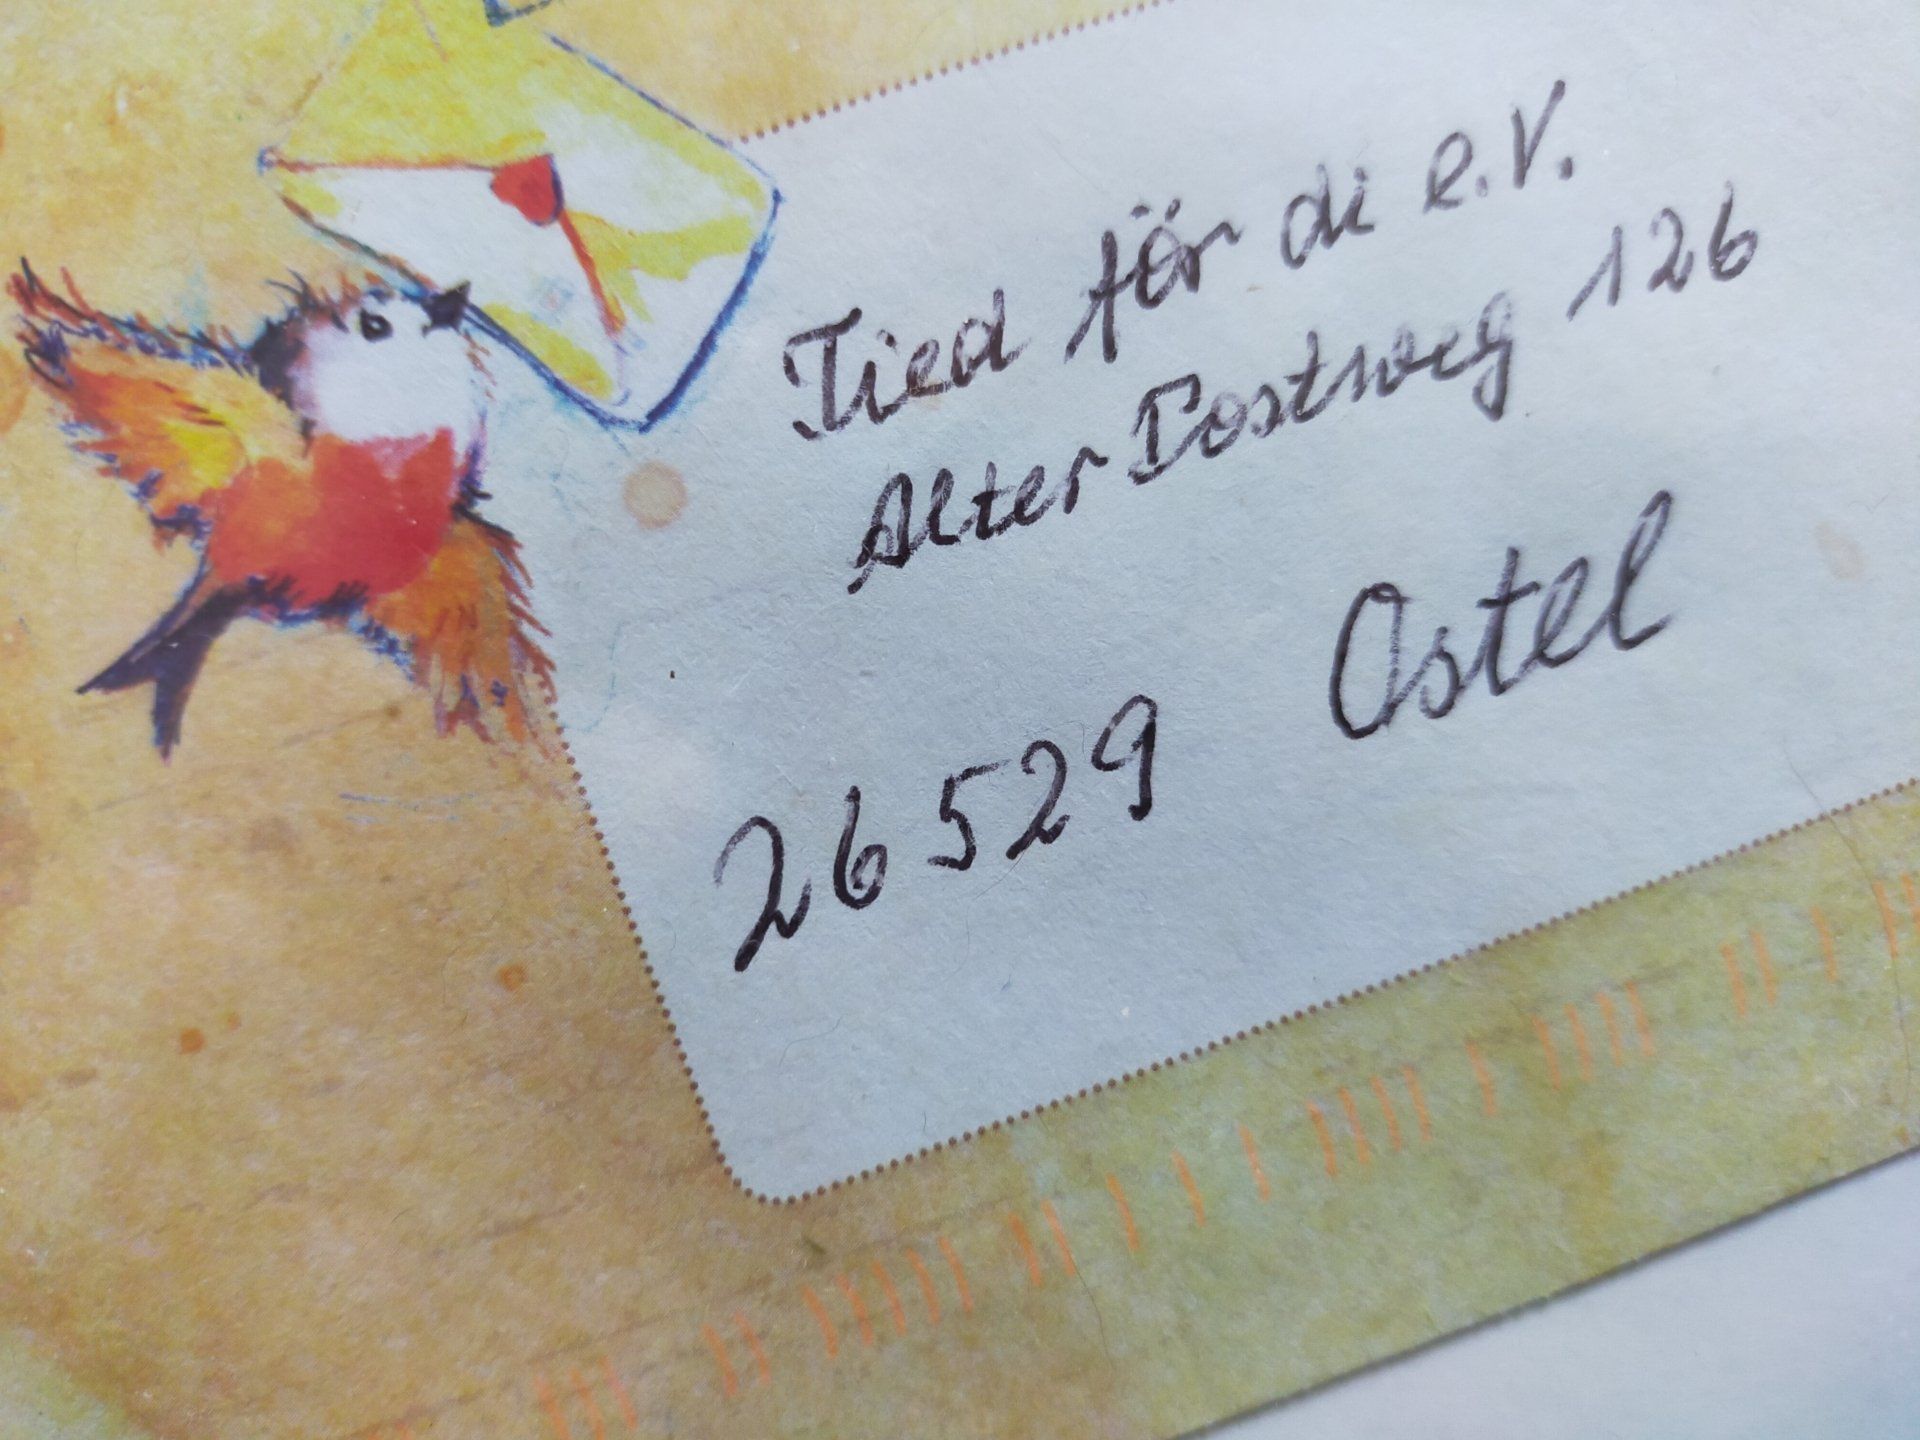 Tied för di e.V.
Alter Postweg 126
26529 Ostel